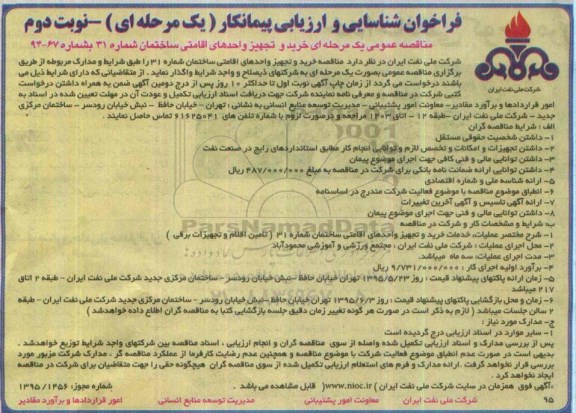 فراخوان شناسایی و ارزیابی پیمانکار ( یک مرحله ای ) -نوبت دوم
مناقصه عمومی یک مرحله ای خرید و تجهیز واحدهای اقامتی ساختمان شماره ۳۱ بشماره ۶۷-۹۴
شرکت ملی نفت ایران
شرکت ملی نفت ایران در نظر دارد مناقصه خرید و تجهیز واحدهای اقامتی ساختمان شماره ۳۱ را طبق شرایط و مدارک مربوطه از طریق
برگزاری مناقصه عمومی بصورت یک مرحله ای به شرکتهای ذیصلاح و واجد شرایط واگذار نماید . از متقاضیانی که دارای شرایط ذیل می
باشند درخواست می گردد از زمان چاپ آگهی نوبت اول تا حداکثر ۱۰ روز پس از درج دومین آگهی ضمن به همراه داشتن درخواست
کتبی شرکت در مناقصه و معرفی نامه نماینده شرکت جهت دریافت اسناد ارزیابی تکمیل و عودت آن در مهلت تعیین شده در اسناد به
امور قراردادها و برآورد مقادیر- معاونت امور پشتیبانی – مدیریت توسعه منابع انسانی به نشانی : تهران - خیابان حافظ - نبش خیابان رودسر - ساختمان مرکزی
جدید – شرکت ملی نفت ایران -طبقه ۱۲ - اتاق ۱۲۰۳ مراجعه و درصورت لزوم با شماره تلفن های ۶۱۶۲۵۰۴۱ تماس حاصل نمایند .
الف : شرایط مناقصه گران
۱- داشتن شخصیت حقوقی مستقل
۲- داشتن تجهیزات و امکانات و تخصص لازم و توانایی انجام کار مطابق استانداردهای رایج در صنعت نفت
۳- داشتن توانایی مالی و فنی کافی جهت اجرای موضوع پیمان
۴- داشتن توانایی ارائه ضمانت نامه بانکی برای شرکت در مناقصه به مبلغ ۴۸۷/۰۰۰/۰۰۰ ریال
۵- ارائه شناسه ملی و شماره اقتصادی
۶- انطباق موضوع مناقصه با موضوع فعالیت شرکت مندرج در اساسنامه
۷- ارائه آگهی تاسیس و آگهی آخرین تغییرات
۸- داشتن توانایی مالی و فنی جهت اجرای موضوع پیمان
ب- شرایط و مشخصات کار و شرکت در مناقصه
۱- شرح مختصر عملیات، خدمات خرید و تجهیز واحدهای اقامتی ساختمان شماره ۳۱ (تامین اقلام و تجهیزات برقی )
۲- محل اجرای عملیات: شرکت ملی نفت ایران : مجتمع ورزشی و آموزشی محمودآباد
۳- مدت اجرای عملیات: سه ماه میباشد.
۴- برآورد اولیه اجرای کار : ۹/۷۳۱/۰۰۰/۰۰۰ ریال
۵- زمان ارائه پاکتهای پیشنهاد قیمت : روز ۱۳۹۵/۵/۲۳ تهران خیابان حافظ -نبش خیابان رودسر - ساختمان مرکزی جدید شرکت ملی نفت ایران - طبقه ۲ اتاق
۲۱۷ میباشد
۶- زمان و محل بازگشایی پاکتهای پیشنهاد قیمت : روز ۱۳۹۵/۶/۳ تهران خیابان حافظ -نبش خیابان رودسر - ساختمان مرکزی جدید شرکت ملی نفت ایران - طبقه
۲ سالن جلسات میباشد ( لازم به ذکر است در صورت هر گونه تغییر زمان دقیق جلسه بازگشایی کتبا به مناقصه گران اطلاع داده خواهدشد )
ج- مدارک مورد نیاز :
۱- سایر موارد در اسناد ارزیابی درج گردیده است
پس از بررسی مدارک و اسناد ارزیابی تکمیل شده واصله از سوی مناقصه گران و انجام ارزیابی ، اسناد مناقصه بین شرکتهای واجد شرایط توزیع خواهدشد .
بدیهی است در صورت عدم انطباق موضوع فعالیت شرکت با موضوع مناقصه و همچنین عدم رضایت کارفرما از عملکرد مناقصه گر ، مدارک شرکت مزبور مورد
بررسی قرار نخواهد گرفت. ارائه مدارک و فرم های استعلام ارزیابی تکمیل شده از سوی مناقصه گران هیچگونه حقی را جهت متقاضیان برای شرکت در مناقصه
ایجاد نخواهد کرد .
«آگهی فوق همزمان در سایت شرکت ملی نفت ایران ( www.nioc.ir) قابل مشاهده می باشد .
شماره مجوز: ۱۴۵۶ / ۱۳۹۵
۹۵ شرکت ملی نفت ایران معاونت امور پشتیبانی مدیریت توسعه منابع انسانی امور قراردادها و برآورد مقادیر